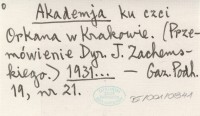 Akademja ku czci
Orkana w Krakowie. (Prze-
mówienie Dyr. J. Zachems-
kiego.) 1931... — Gaz. Podh.
19, nr 21.